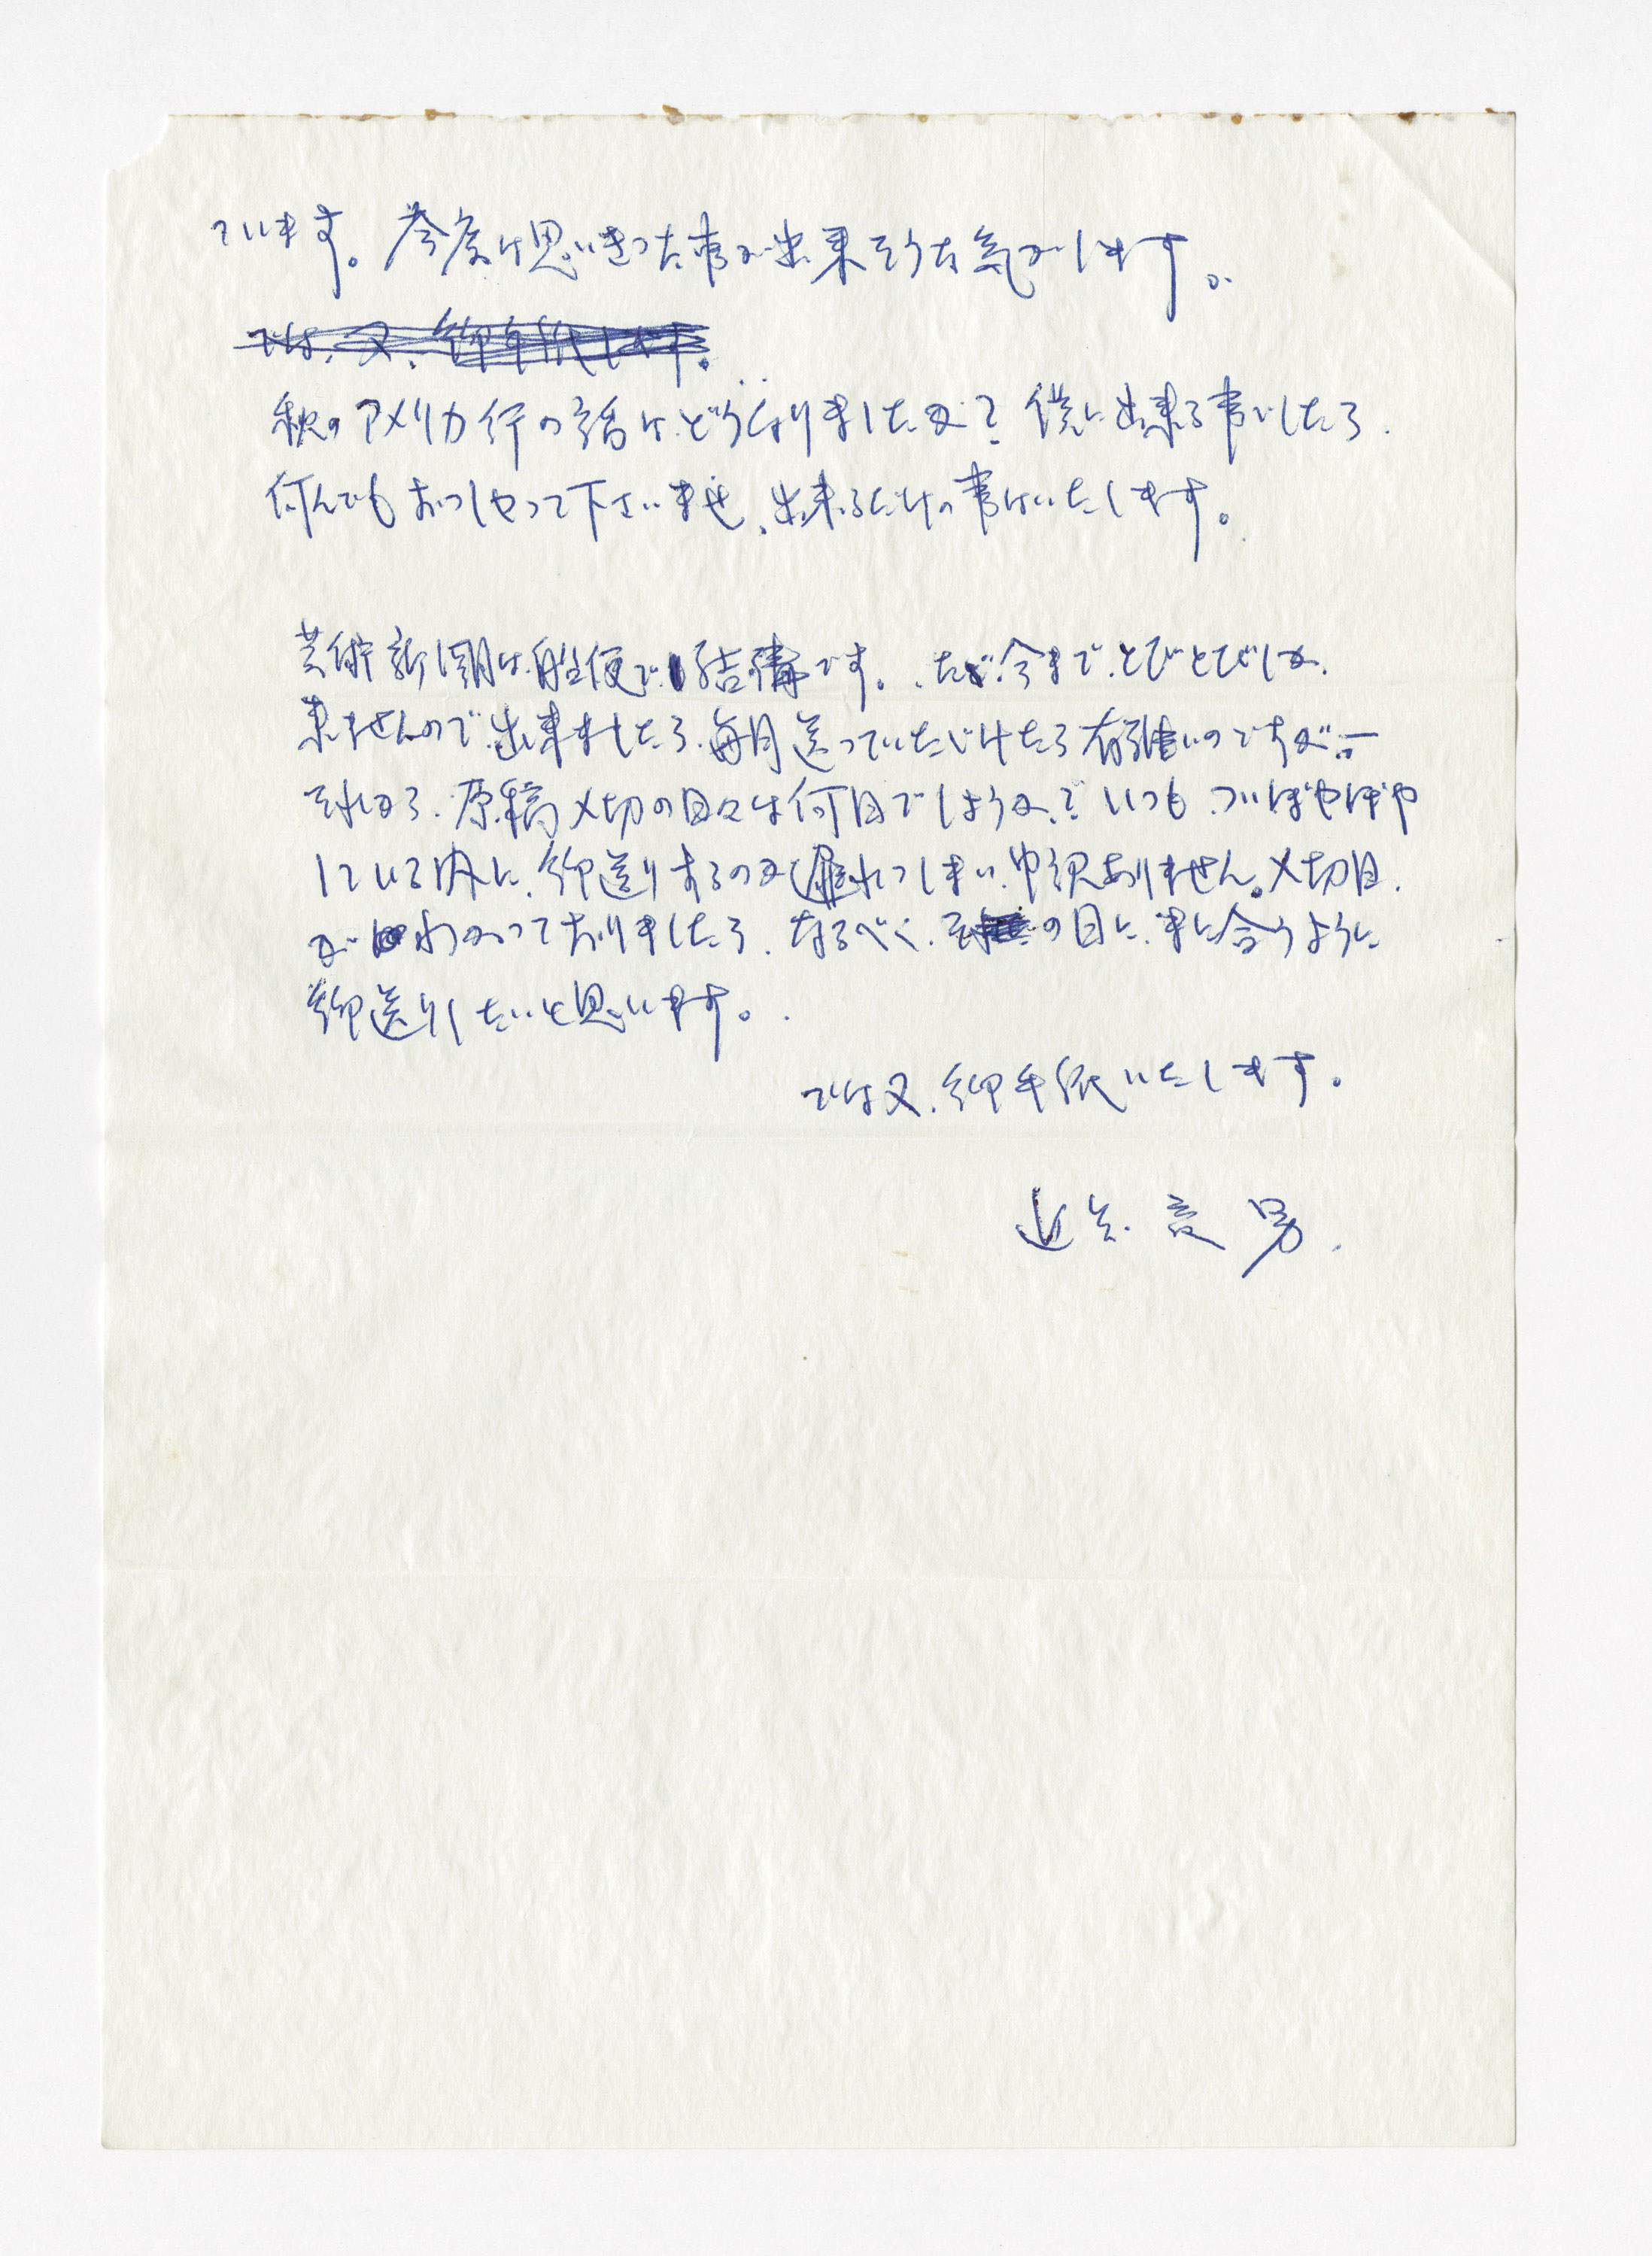 ています。今度は思いきった事が出来そうな気がします。
では、又、御手紙します。
秋のアメリカ行の話は、どうなりましたか？ 僕に出来る事でしたら、
何んでもおっしゃって下さいませ、出来るだけの事はいたします。
芸術新潮は、船便で結構です。ただ、今まで、とびとびしか、
来ませんので、出来ましたら、毎月送っていただけたら有難いのですが…
それから、原稿〆切の日々は何日でしょうか？ いつも、ついぼやぼや
している内に、御送りするのが遅れてしまい、申訳ありません。〆切日
が わかっておりましたら、なるべく、その日に、まに合うように
御送りしたいと思います。
では又、御手紙いたします。
近 男